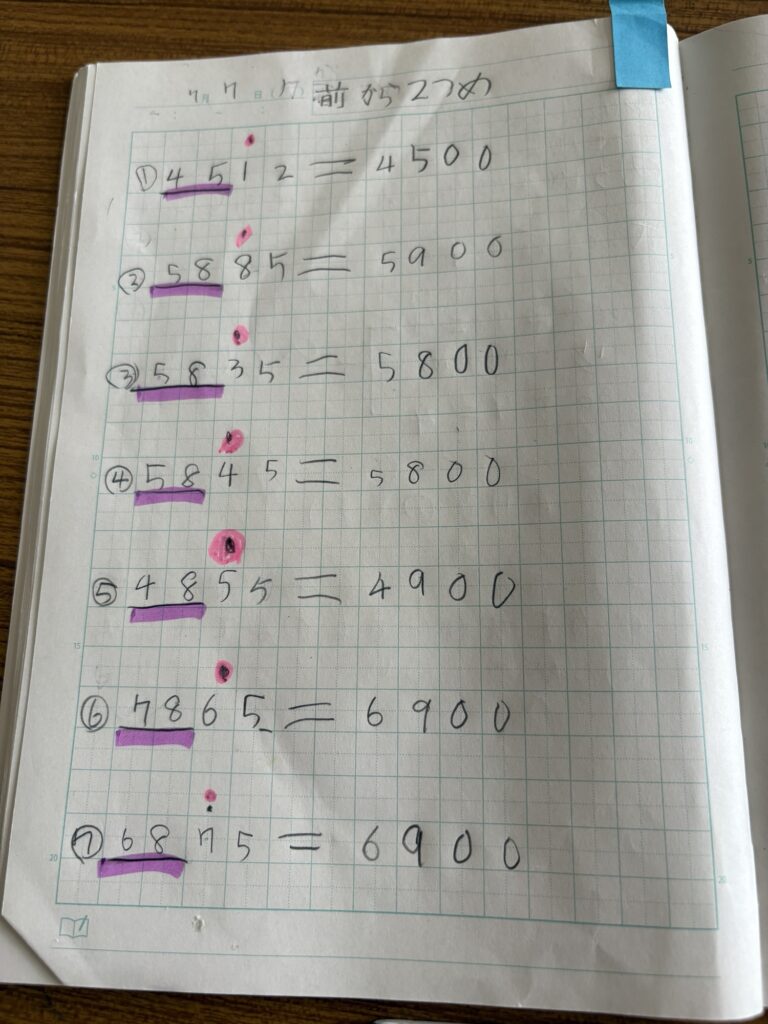 7月7日 前から2つめ
① 4512=4500
② 5885=5900
③ 5835=5800
④ 5845=5800
⑤ 4855=4900
⑥ 7865=6900
⑦ 6875=6900